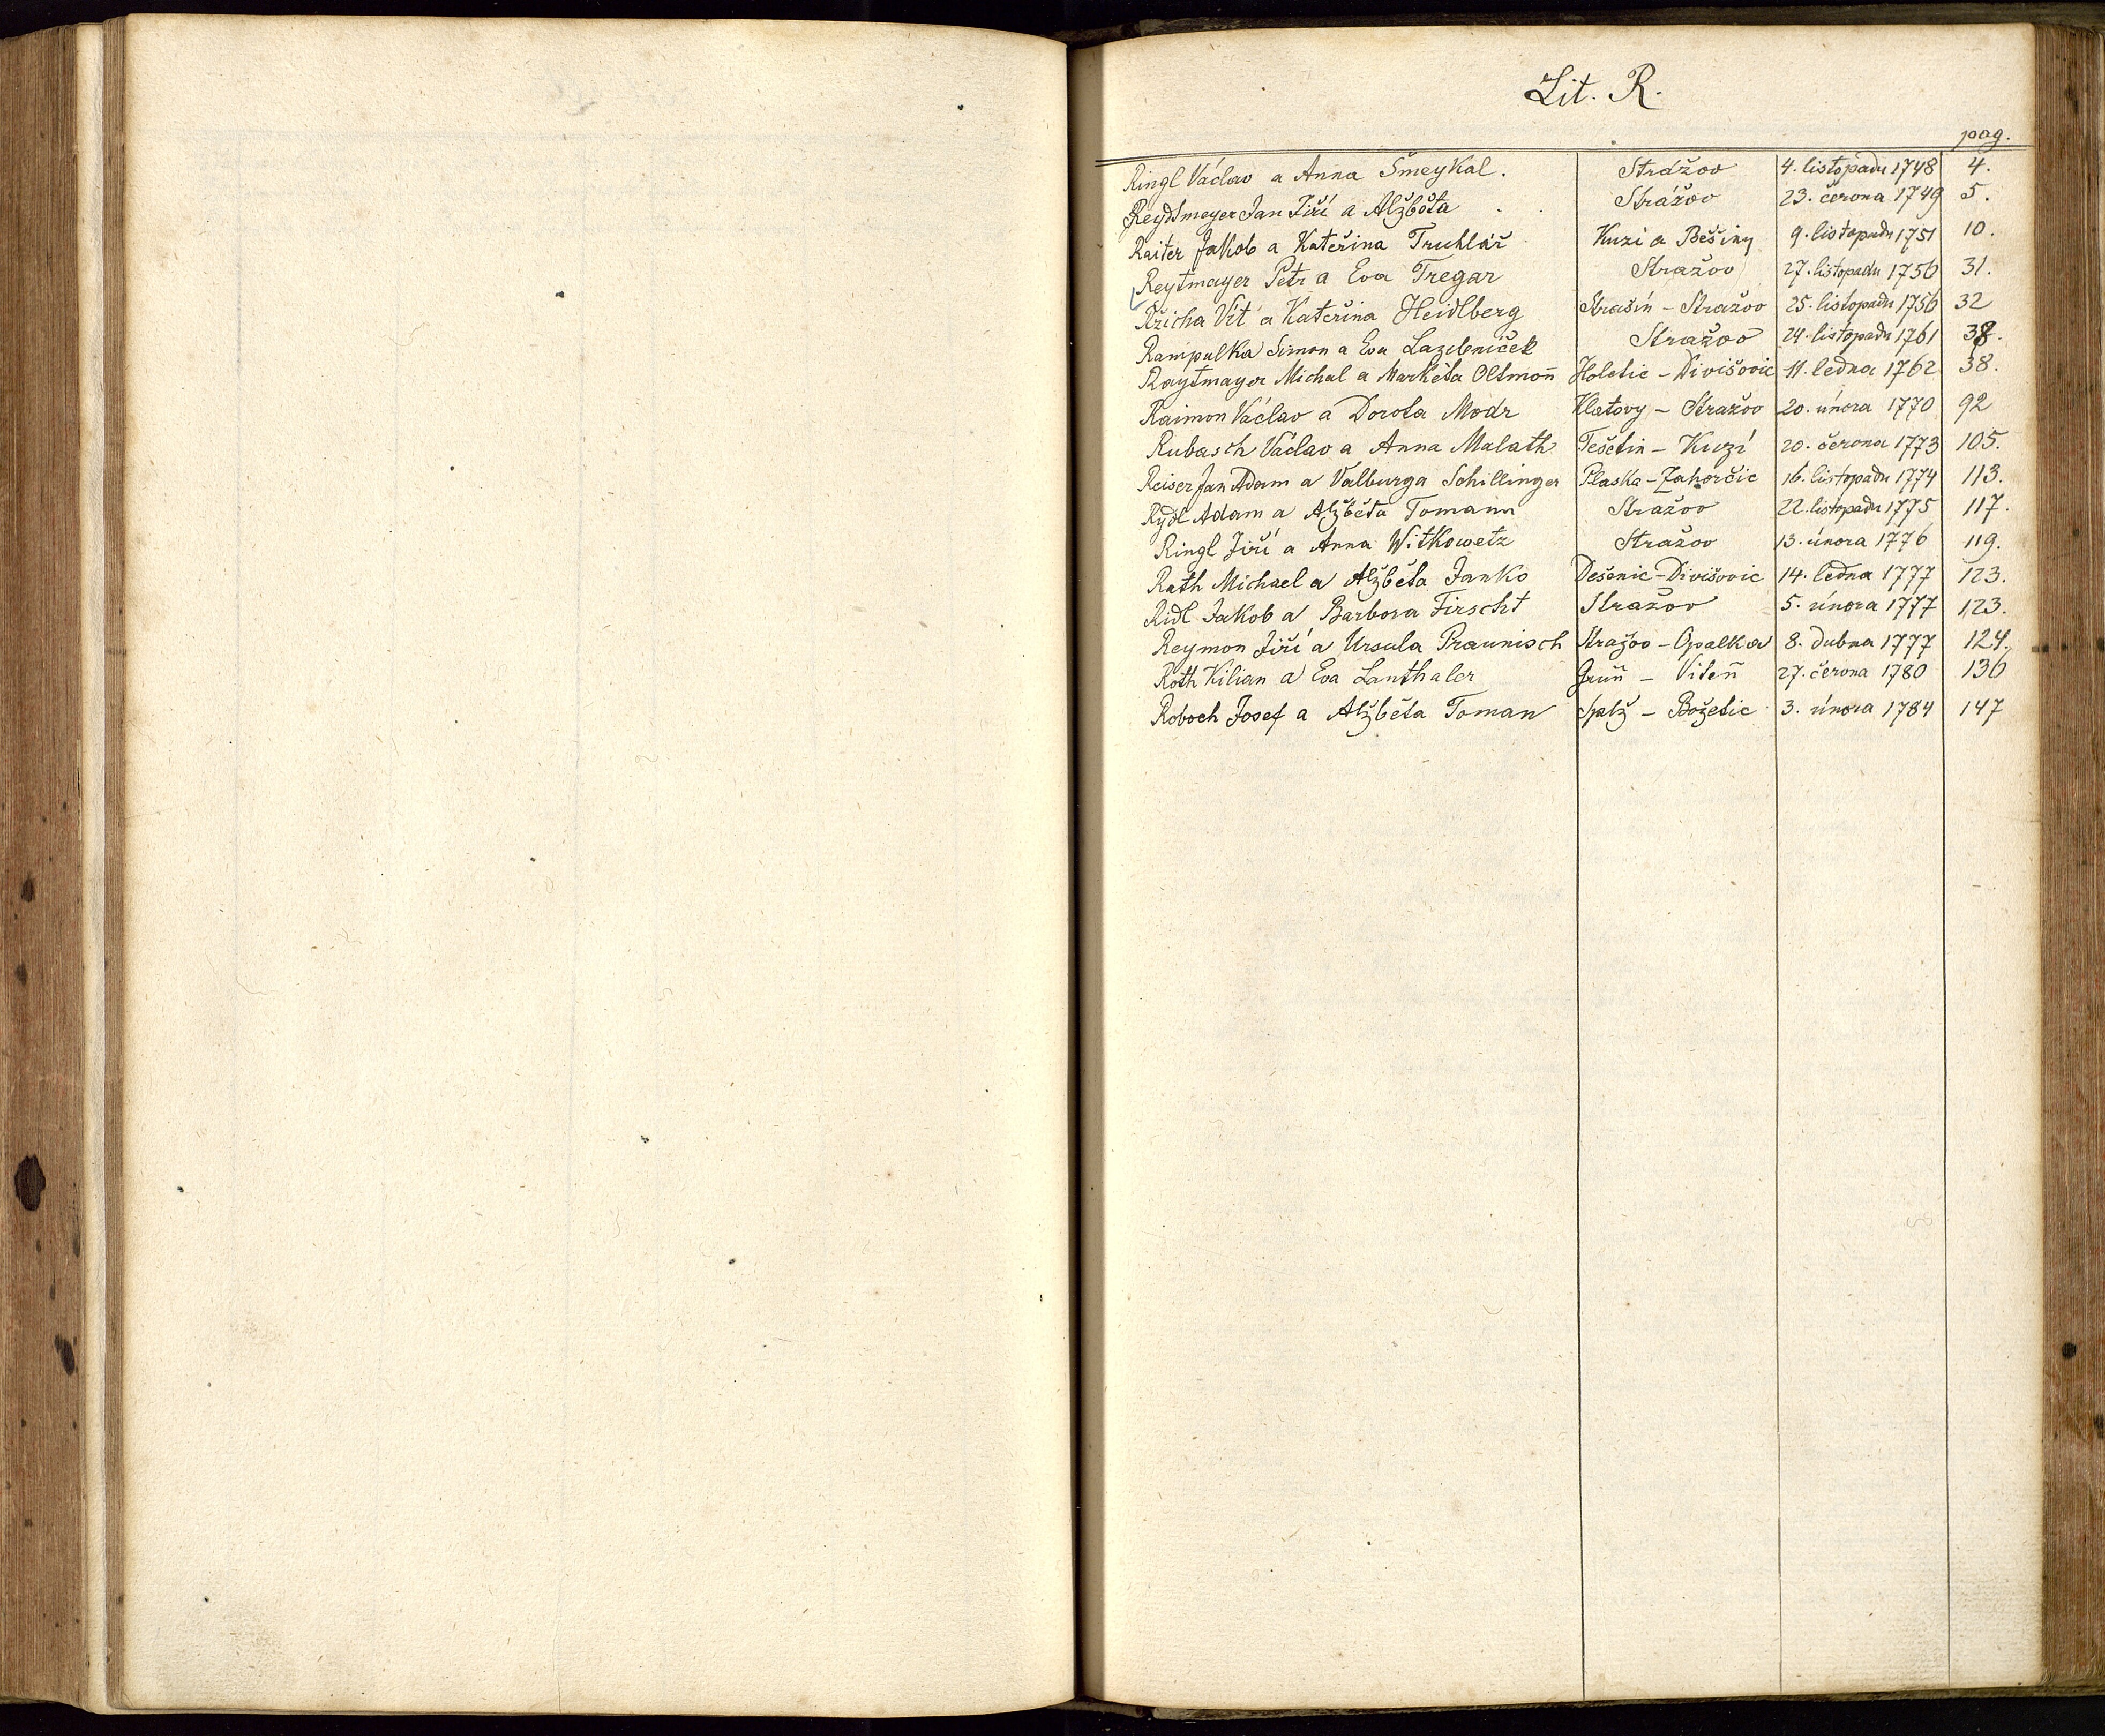 Lit. R.
pag.
Ringl Václav a Anna Šmeykal. Strážov 4. listopadu 1748 4.
Reydlmeyer Jan Jiří a Alžběta . . Strážov 23. června 1749 5.
Raiter Jakob a Kateřina Truhlář Kuzí a Běšiny 9. listopadu 1751 10.
Reytmayer Petr a Eva Tregar Stražov 27. listopadu 1756 31.
Řzicha Vít a Kateřina Heidlberg Strašín - Stražov 25. listopadu 1756 32
Rampulka Šimon a Eva Lazebníček Stražov 24. listopadu 1761 38.
Raytmayer Michal a Markéta Oltmon̄ Holetic - Divišovic 11. ledna 1762 38.
Raimon Václav a Dorota Modr Klatovy - Stražov 20. února 1770 92
Rubasch Václav a Anna Malath Tešetin - Kuzí 20. června 1773 105.
Reiser Jan Adam a Valburga Schillinger Plaska - Zahorčic 16. listopadu 1774 113.
Rydl Adam a Alžběta Tomann Stražov 22. listopadu 1775 117.
Ringl Jiří a Anna Witkowetz Stražov 13. února 1776 119.
Rath Michael a Alžběta Janko Dešenic - Divišovic 14. ledna 1777 123.
Ridl Jakob a Barbora Firscht Stražov 5. února 1777 123.
Reymon Jiří a Ursula Praunisch Stražov - Opalka 8. dubna 1777 124.
Roth Kilian a Eva Lanthaler Grün̄ - Viteň 27. června 1780 136
Roboch Josef a Alžběta Toman Spálž - Božetic 3. února 1784 147